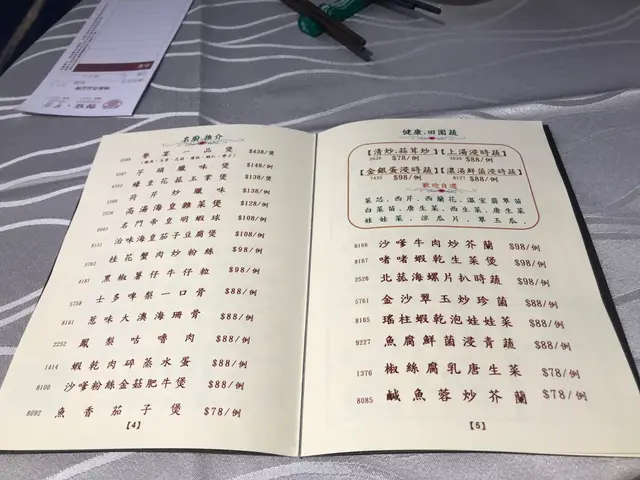 名廚推介
譽宴一品煲 $438/例
芋頭臘味煲 $148/例
蠔皇花菰玉掌煲 $138/例
荷芹炒臘味 $138/例
高湯海皇雜菜煲 $128/例
名門帝皇明蝦球 $108/例
泊味海皇茄子豆腐煲 $108/例
桂花蟹肉炒粉絲 $98/例
黑椒薯仔牛仔粒 $98/例
5758 士多啤梨一口骨 $88/例
8161 惹味大澳海珊骨 $88/例
2252 鳳梨咕嚕肉 $88/例
1414 蝦乾肉碎蒸水蛋 $88/例
8100 沙嗲粉絲金菇肥牛煲 $88/例
8092 魚香茄子煲 $78/例
【4】
健康.田園蔬
【清炒,蒜茸炒】 【上湯浸時蔬】
$78/例 $88/例
【金銀蛋浸時蔬】 【濃湯鮮菌浸時蔬】
7435 $98/例 8127 $88/例
歡迎自選
菜芯、西芹、西蘭花、溫室翡翠苗
白菜苗、唐生菜、西生菜、唐生菜
娃娃菜、涼瓜片、翠玉瓜、
8166 沙嗲牛肉炒芥蘭 $98/例
8167 啫啫蝦乾生菜煲 $98/例
2526 北菰海螺片扒時蔬 $98/例
5761 金沙翠玉炒珍菌 $88/例
8165 瑤柱蝦乾泡娃娃菜 $88/例
9227 魚腐鮮菌浸青蔬 $88/例
1376 椒絲腐乳唐生菜 $78/例
8085 鹹魚蓉炒芥蘭 $78/例
【5】